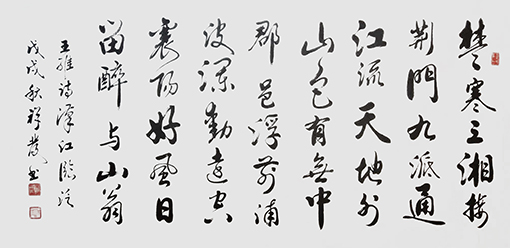 楚寒三湘接
荆門九派通
江流天地外
山色有無中
郡邑浮前浦
波瀾動遠空
襄陽好風日
留醉与山翁
王維詩漢江臨泛
戊戌秋書